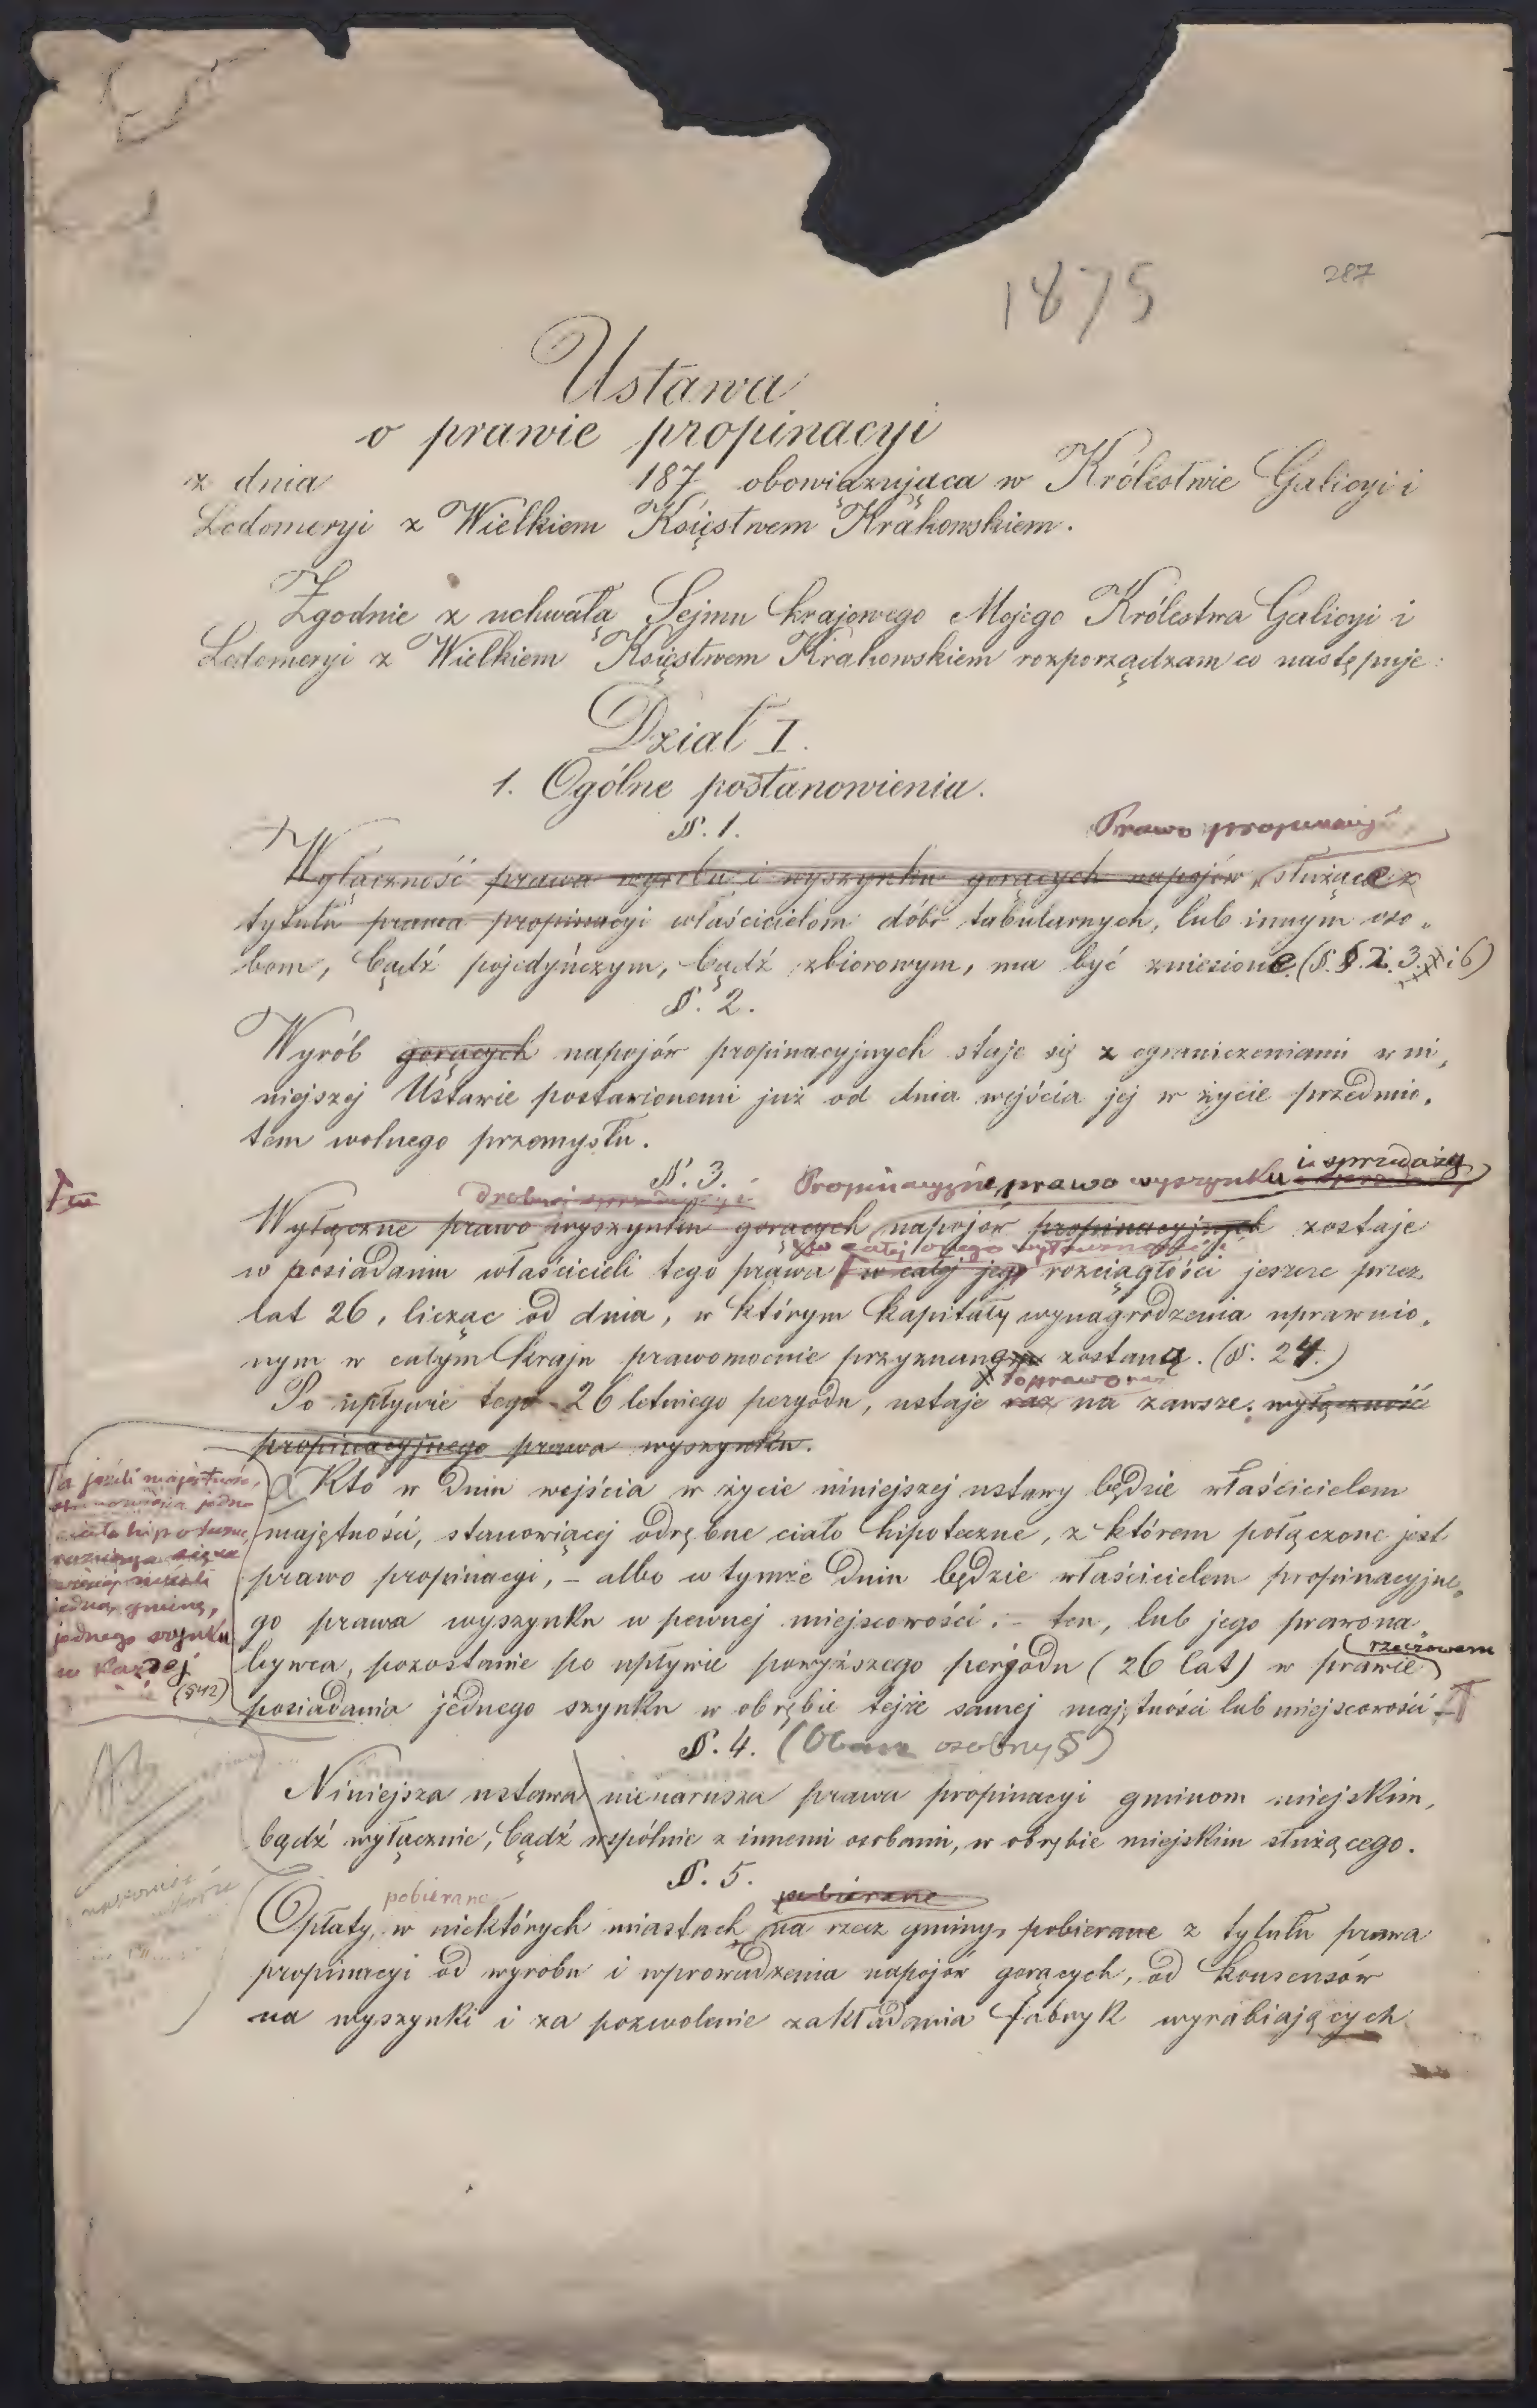 1875
287
Ustawa
o prawie propinacyi
z dnia 187 obowiązująca w Królestwie Galicyi i
Lodomeryi z Wielkiem Księstwem Krakowskiem.
Zgodnie z uchwałą Sejmu krajowego Mojego Królestwa Galicyi i
Lodomeryi z Wielkiem Księstwem Krakowskiem rozporządzam co następuje:
Dział I.
1. Ogólne postanowienia.
§. 1.
Prawo propinacyi
Wyłączność prawa wyrobu i wyszynku gorących napojów, służące z
tytułu prawa propinacyi właścicielom dóbr tabularnych, lub innym oso„
bom, bądź pojedyńczym, bądź zbiorowym, ma być zniesione. (§. §. 2. 3. i 6)
§. 2.
Wyrób gorących napojów propinacyjnych staje się z ograniczeniami w ni„
niejszej Ustawie postawionemi już od dnia wejścia jej w życie przedmio„
tem wolnego przemysłu.
§. 3.
Propinacyjne prawo wyszynku i sprzedaży
drobnej sprzedaży i
Wyłączne prawo wyszynku gorących napojów propinacyjnych zostaje
w całej onego
w posiadaniu właścicieli tego prawa w całej jego rozciągłości jeszcze przez
lat 26, licząc od dnia, w którym kapitały wynagrodzenia uprawnio„
nym w całym kraju prawomocnie przyznane zostaną. (§. 24.)
to prawo raz
Po upływie tego 26 letniego peryodu, ustaje raz na zawsze. wyłączność
propinacyjnego prawa wyszynku.
Kto w dniu wejścia w życie niniejszej ustawy będzie właścicielem
majętności, stanowiącej odrębne ciało hipoteczne, z którem połączone jest
prawo propinacyi, – albo w tymże dniu będzie właścicielem propinacyjne„
go prawa wyszynku w pewnej miejscowości: – ten, lub jego prawona„
rzeczowem
bywca, pozostanie po upływie powyższego peryodu (26 lat) w prawie
posiadania jednego szynku w obrębie tejże samej majętności lub miejscowości
a jeżeli majętność,
stanowiąca jedno
ciało hipoteczne,
rozciąga się na
więcej niżeli
jedną gminę,
jednego szynku
w każdej
(§42)
§. 4. (osobny §)
Niniejsza ustawa nienarusza prawa propinacyi gminom miejskim,
bądź wyłącznie, bądź wspólnie z innemi osobami, w obrębie miejskim służącego.
§. 5.
pobierane pobierane
Opłaty, w niektórych miastach na rzecz gminy, pobierane z tytułu prawa
propinacyi od wyrobu i wprowadzenia napojów gorących, od konsensów
na wyszynki i za pozwolenie zakładania fabryk wyrabiających